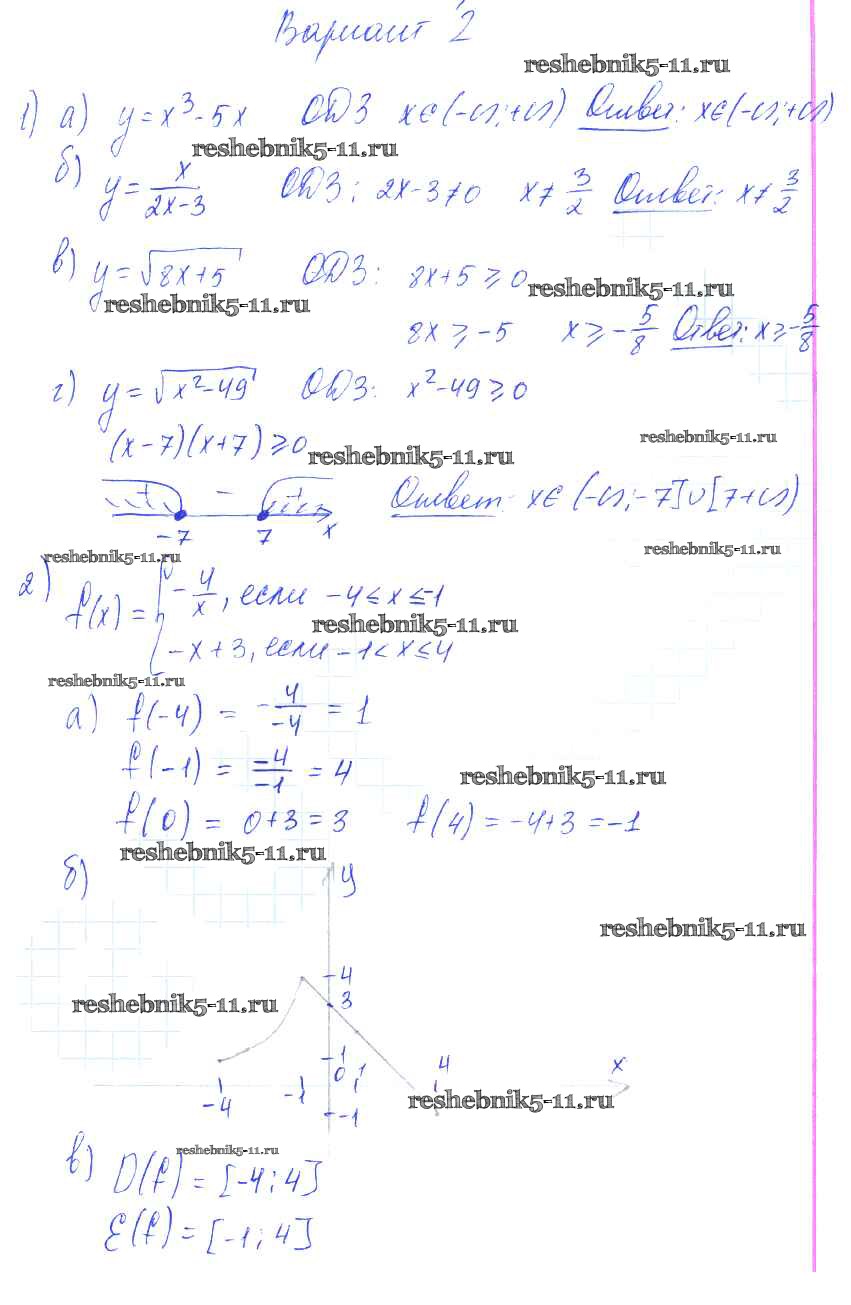 Вариант 2
reshebnik5-11.ru
1) а) y = x³ - 5x ОДЗ x∈(-∞;+∞) Ответ: x∈(-∞;+∞)
reshebnik5-11.ru
б) y = x/(2x-3) ОДЗ: 2x-3≠0 x≠3/2 Ответ: x≠3/2
в) y = √(8x+5) ОДЗ: 8x+5 ⩾ 0
reshebnik5-11.ru reshebnik5-11.ru
8x ⩾ -5 x ⩾ -5/8 Ответ: x ⩾ -5/8
г) y = √(x²-49) ОДЗ: x²-49 ⩾ 0
(x-7)(x+7) ⩾ 0
reshebnik5-11.ru
reshebnik5-11.ru
+ - +
-7 7 x
Ответ: x∈(-∞;-7]∪[7+∞)
reshebnik5-11.ru reshebnik5-11.ru
2) f(x) = { -4/x, если -4 ≤ x ≤ -1
reshebnik5-11.ru
-x+3, если -1 < x ≤ 4
reshebnik5-11.ru
а) f(-4) = -4/-4 = 1
f(-1) = -4/-1 = 4
reshebnik5-11.ru
f(0) = 0+3 = 3 f(4) = -4+3 = -1
reshebnik5-11.ru
б) y
reshebnik5-11.ru
4
reshebnik5-11.ru
3
1
0 1 4 x
-4 -1
reshebnik5-11.ru
-1
reshebnik5-11.ru
в) D(f) = [-4;4]
E(f) = [-1;4]